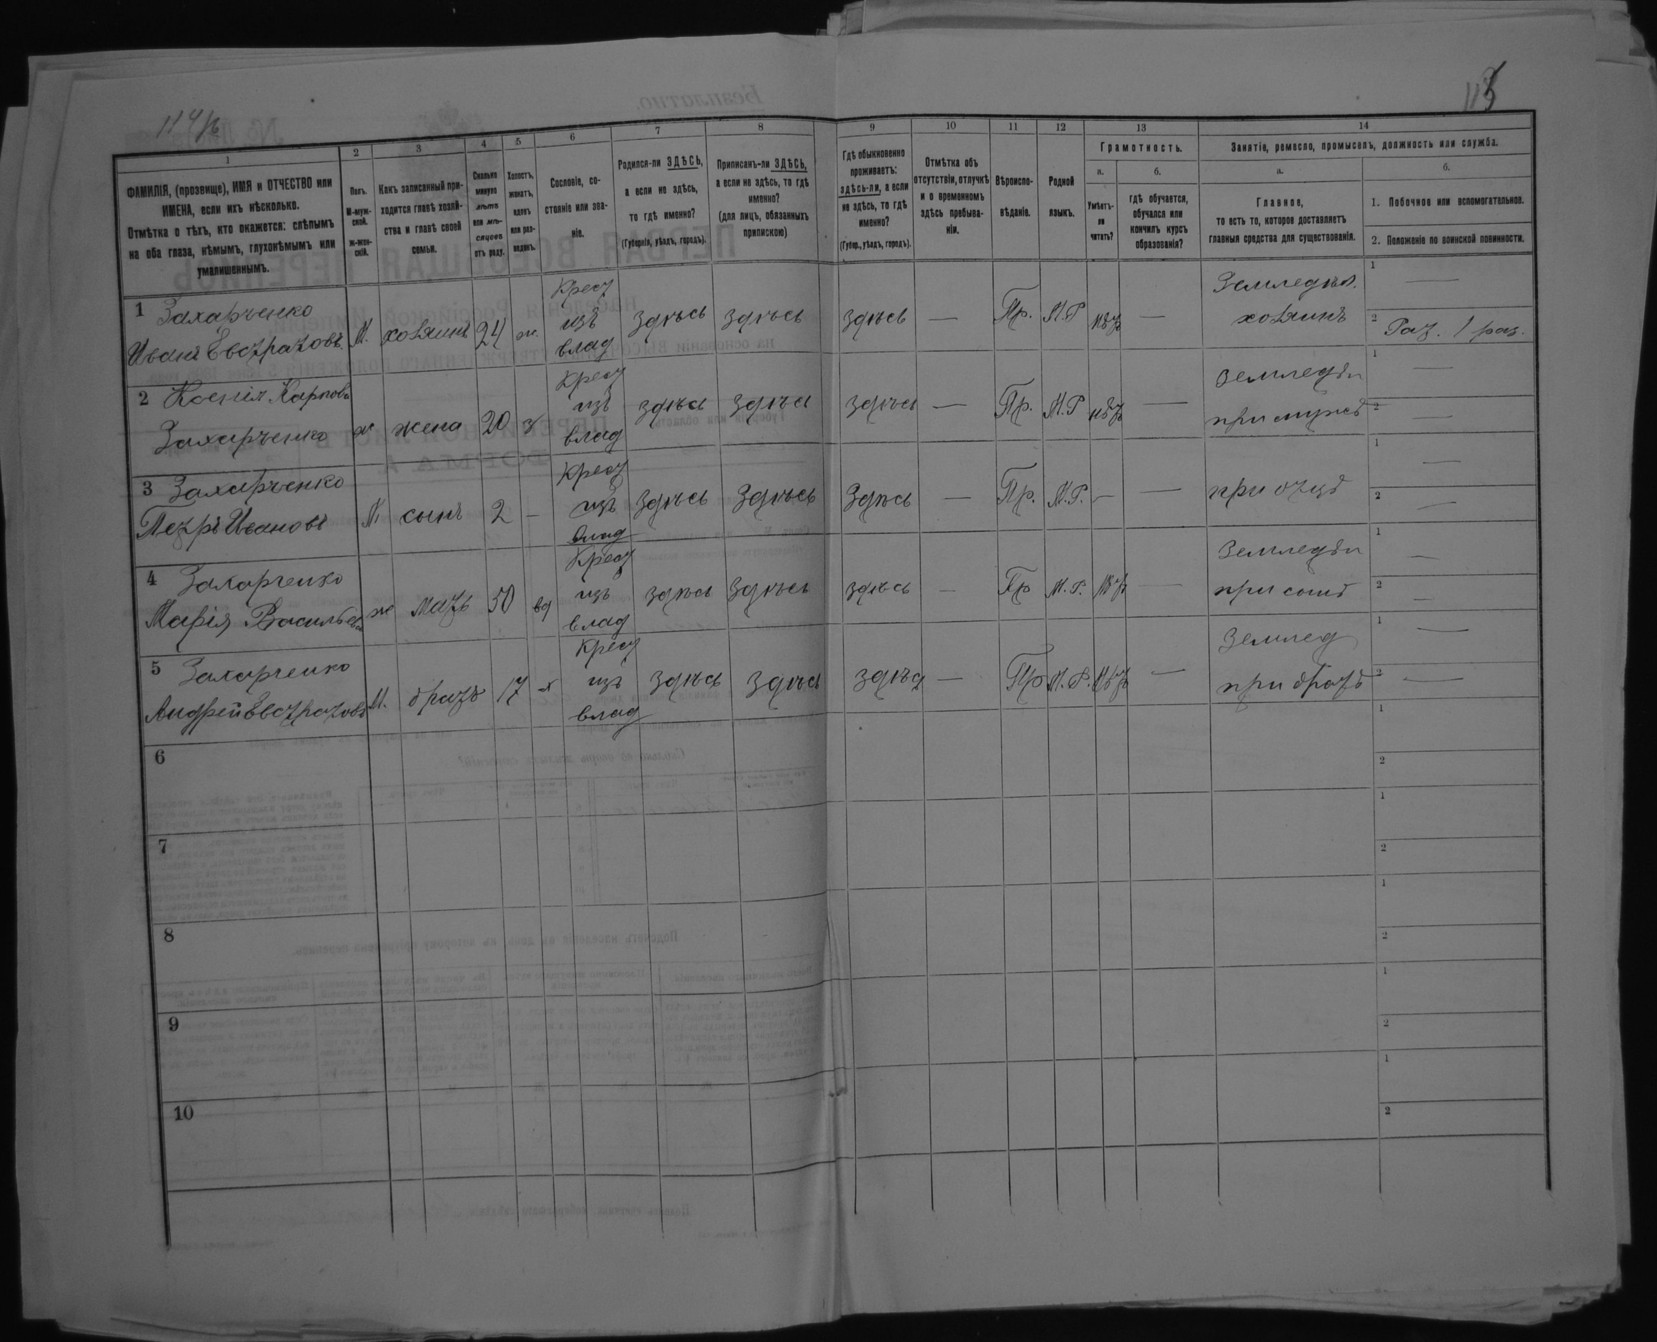 Безплатно.
115
1
2
3
4
5
6
7
8
9
10
11
12
13
14
ФАМИЛІЯ, (прозвище), ИМЯ и ОТЧЕСТВО или
ИМЕНА, если ихъ нѣсколько.
Отмѣтка о тѣхъ, кто окажется: слѣпымъ
на оба глаза, нѣмымъ, глухонѣмымъ или
умалишеннымъ.
Полъ.
М-муж-
ской.
ж-жен-
скій.
Какъ записанный при-
ходится главѣ хозяй-
ства и главѣ своей
семьи.
Сколько
минуло
лѣтъ
или мѣ-
сяцевъ
отъ роду.
Холостъ,
женатъ,
вдовъ
или раз-
веденъ.
Сословіе, со-
стояніе или зва-
ніе.
Родился-ли ЗДѢСЬ,
а если не здѣсь,
то гдѣ именно?
(Губернія, уѣздъ, городъ).
Приписанъ-ли ЗДѢСЬ,
а если не здѣсь, то гдѣ
именно?
(для лицъ, обязанныхъ
припискою)
Гдѣ обыкновенно
проживаетъ:
здѣсь-ли, а если
не здѣсь, то гдѣ
именно?
(Губер., уѣздъ, городъ).
Отмѣтка объ
отсутствіи, отлучкѣ
и о временномъ
здѣсь пребыва-
ніи.
Вѣроиспо-
вѣданіе.
Родной
языкъ.
Грамотность.
а.
Умѣетъ-
ли
читать?
б.
гдѣ обучается,
обучался или
кончилъ курсъ
образованія?
Занятіе, ремесло, промыселъ, должность или служба.
а.
Главное,
то есть то, которое доставляетъ
главныя средства для существованія.
б.
1. Побочное или вспомогательное.
2. Положеніе по воинской повинности.
1 Захарченко
Иванъ Евстратовъ
М. хозяинъ 24 ж.
Крест
изъ
влад
здѣсь здѣсь здѣсь — Пр. М.Р нѣтъ —
Земледѣл.
хозяинъ
1 —
2 Рат. 1 раз.
2 Ксенія Карпова
Захарченко
ж жена 20 з
Крест
изъ
влад
здѣсь здѣсь здѣсь — Пр. М.Р нѣтъ —
Земледѣл
при мужѣ
1 —
2 —
3 Захарченко
Петръ Ивановъ
М. сынъ 2 —
Крест
изъ
влад
здѣсь здѣсь здѣсь — Пр. М.Р. — —
при отцѣ
1 —
2 —
4 Захарченко
Марія Васильева
ж мать 50 вд
Крест
изъ
влад
здѣсь здѣсь здѣсь — Пр М.Р. нѣтъ —
Земледѣл
при сынѣ
1 —
2 —
5 Захарченко
Андрей Евстратовъ
М. братъ 17 х
Крест
изъ
влад
здѣсь здѣсь здѣсь — Пр М.Р. нѣтъ —
Землед
при братѣ
1 —
2 —
6
1
2
7
1
2
8
1
2
9
1
2
10
1
2